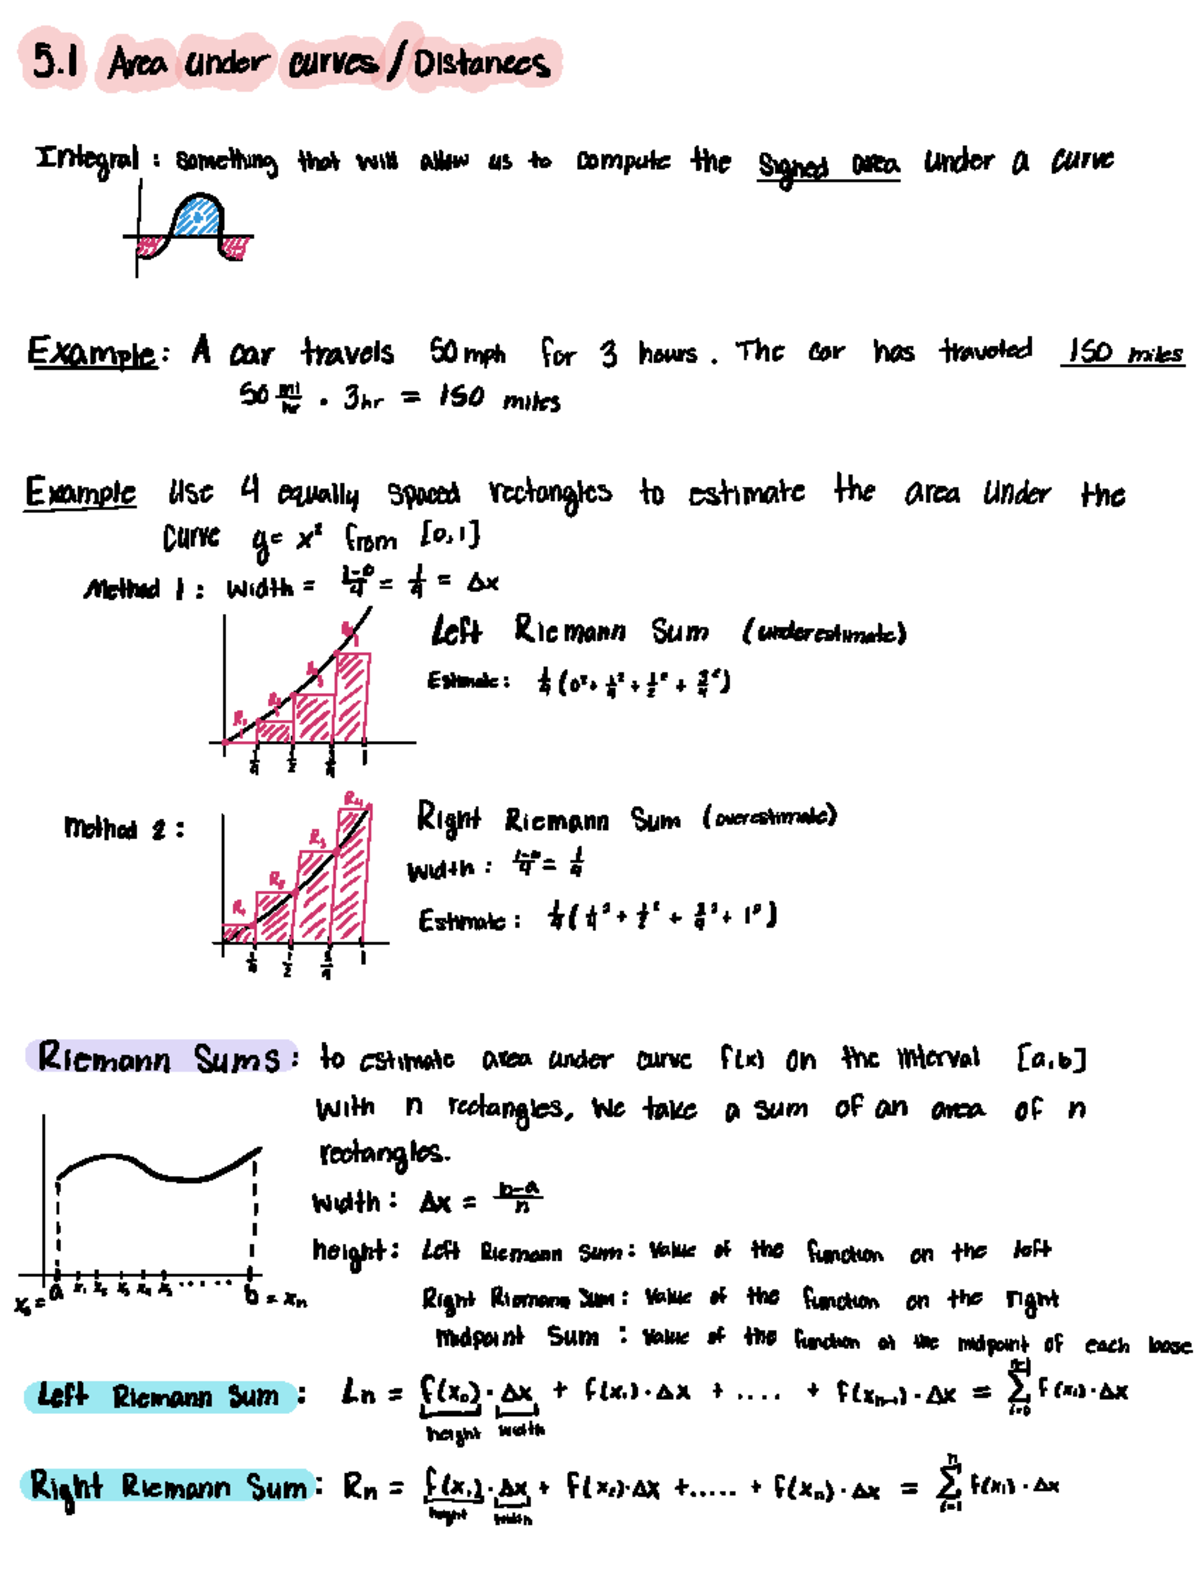 5.1 Area under curves / Distances
Integral : something that will allow us to compute the signed area under a curve
Example: A car travels 50 mph for 3 hours. The car has traveled 150 miles
50 mi/hr · 3hr = 150 miles
Example Use 4 equally spaced rectangles to estimate the area under the
curve y = x² from [0,1]
Method 1 : Width = 1-0/4 = 1/4 = Δx
Left Riemann Sum (underestimate)
Estimate : 1/4 (0² + 1/4² + 1/2² + 3/4²)
R₁ R₂ R₃ R₄
1/4 1/2 3/4 1
Method 2 :
Right Riemann Sum (overestimate)
Width : 1-0/4 = 1/4
Estimate : 1/4 (1/4² + 1/2² + 3/4² + 1²)
R₁ R₂ R₃ R₄
1/4 1/2 3/4 1
Riemann Sums : to estimate area under curve f(x) on the interval [a,b]
with n rectangles, we take a sum of an area of n
rectangles.
width : Δx = b-a/n
height : Left Riemann Sum : Value of the function on the left
Right Riemann Sum : Value of the function on the right
Midpoint Sum : Value of the function at the midpoint of each base
x₀ = a x₁ x₂ x₃ x₄ x₅ ...... b = xₙ
Left Riemann Sum : Ln = f(x₀) · Δx + f(x₁) · Δx + .... + f(xₙ₋₁) · Δx = n-1 Σ i=0 f(xᵢ) · Δx
height width
Right Riemann Sum : Rn = f(x₁) · Δx + f(x₂) · Δx + ..... + f(xₙ) · Δx = n Σ i=1 f(xᵢ) · Δx
height width